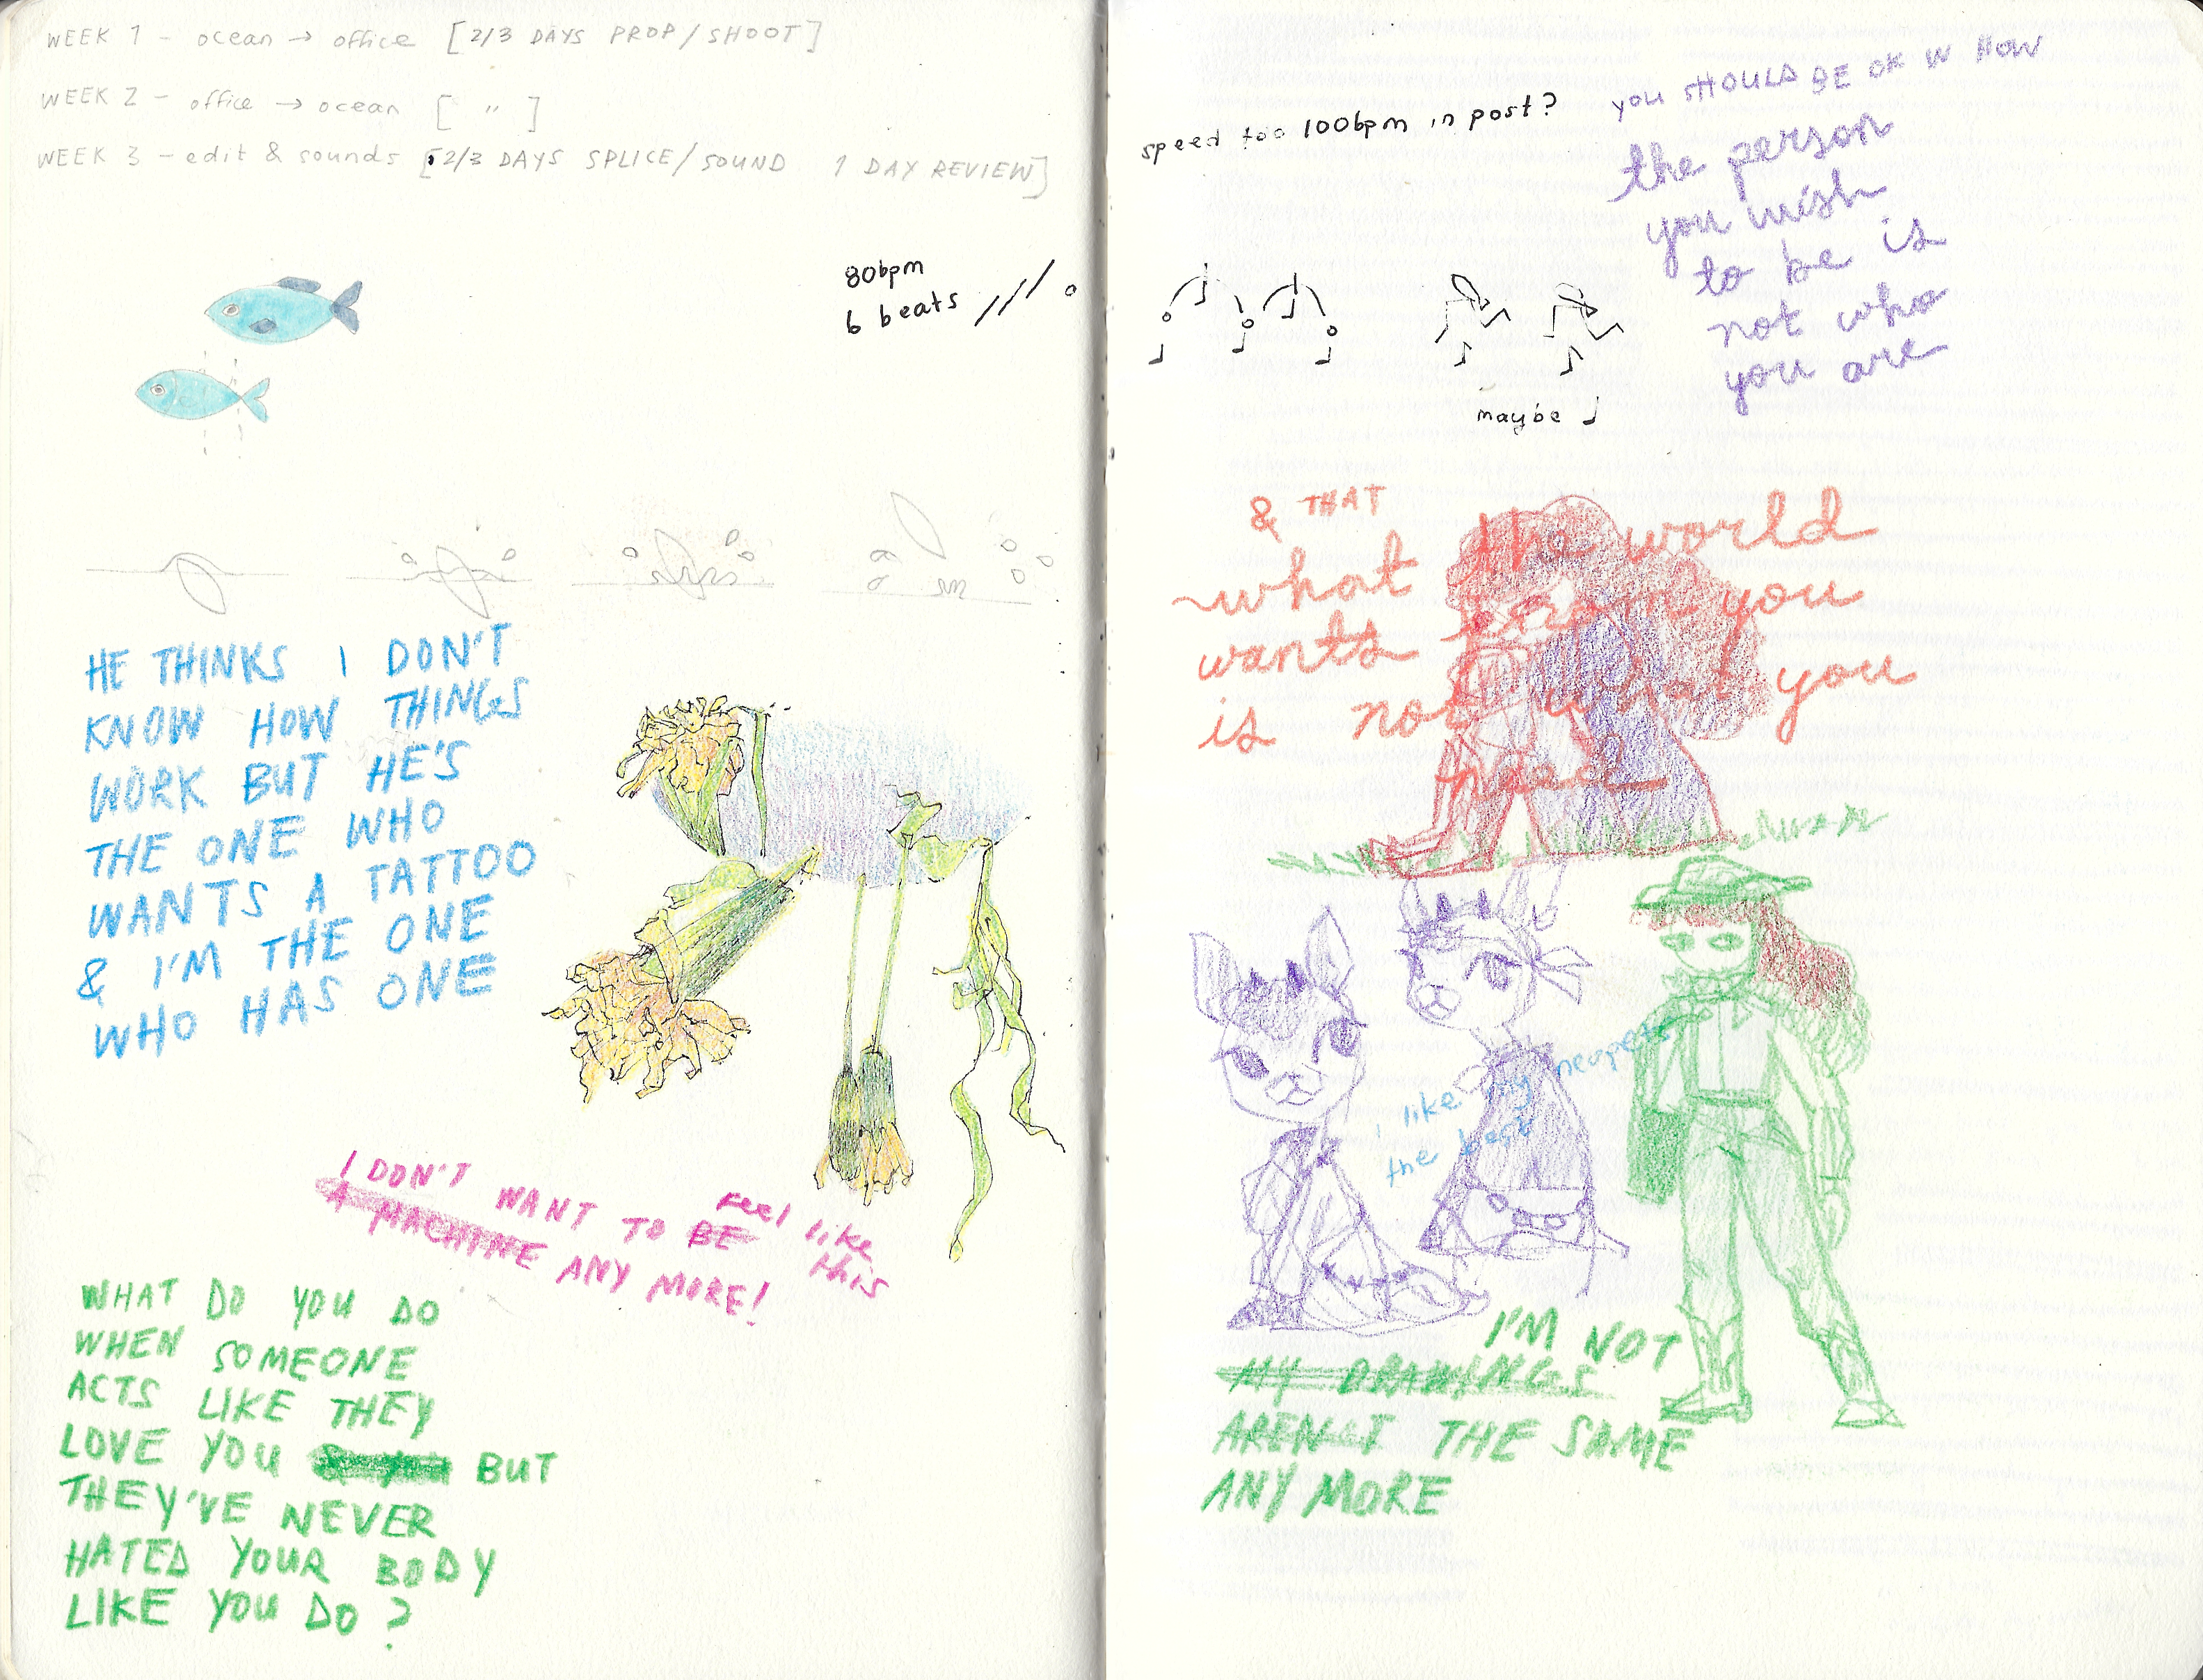 WEEK 1 - ocean → office [2/3 DAYS PROP/SHOOT]
WEEK 2 - office → ocean [ " ]
WEEK 3 - edit & sounds [2/3 DAYS SPLICE/SOUND 1 DAY REVIEW]
80bpm
6 beats
HE THINKS I DON'T
KNOW HOW THINGS
WORK BUT HE'S
THE ONE WHO
WANTS A TATTOO
& I'M THE ONE
WHO HAS ONE
I DON'T WANT TO BE feel like
this
A MACHINE ANY MORE!
WHAT DO YOU DO
WHEN SOMEONE
ACTS LIKE THEY
LOVE YOU BUT
THEY'VE NEVER
HATED YOUR BODY
LIKE YOU DO?
speed too 100bpm in post?
maybe
YOU SHOULD BE OK W HOW
the person
you wish
to be is
not who
you are
& THAT
what the world
wants from you
is not what you
need
i like my neopets
the best
I'M NOT
MY DRAWINGS
AREN'T THE SAME
ANY MORE